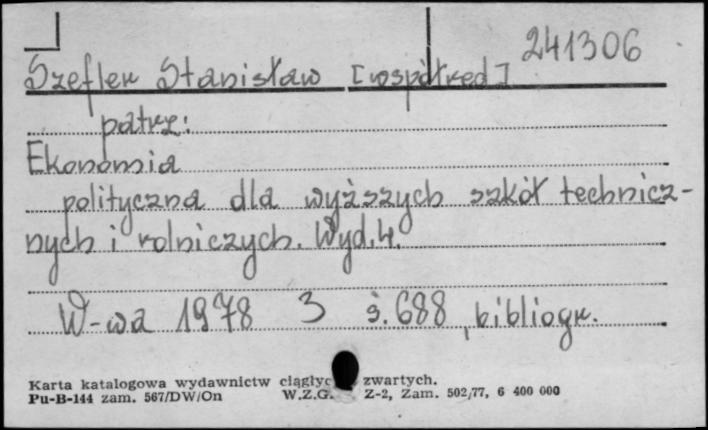 241306
Szefler Stanisław [współred]
patrz:
Ekonomia
polityczna dla wyższych szkół technicz-
nych i rolniczych. Wyd. 4.
W-wa 1978 3 s. 688, bibliogr.
Karta katalogowa wydawnictw ciągłyc zwartych.
Pu-B-144 zam. 567/DW/On W.Z.G. Z-2, Zam. 502/77, 6 400 000